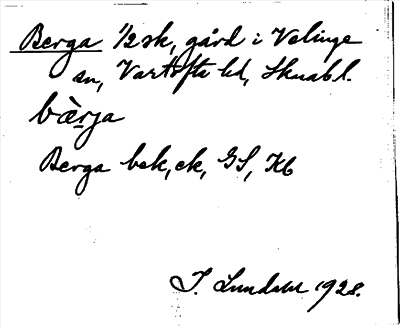 Berga 1/2 sk, gård i Velinge
sn, Vartofta hd, Skuab.l.
bærja
Berga bek, ek, GS, Kb
I. Lundahl 1928.